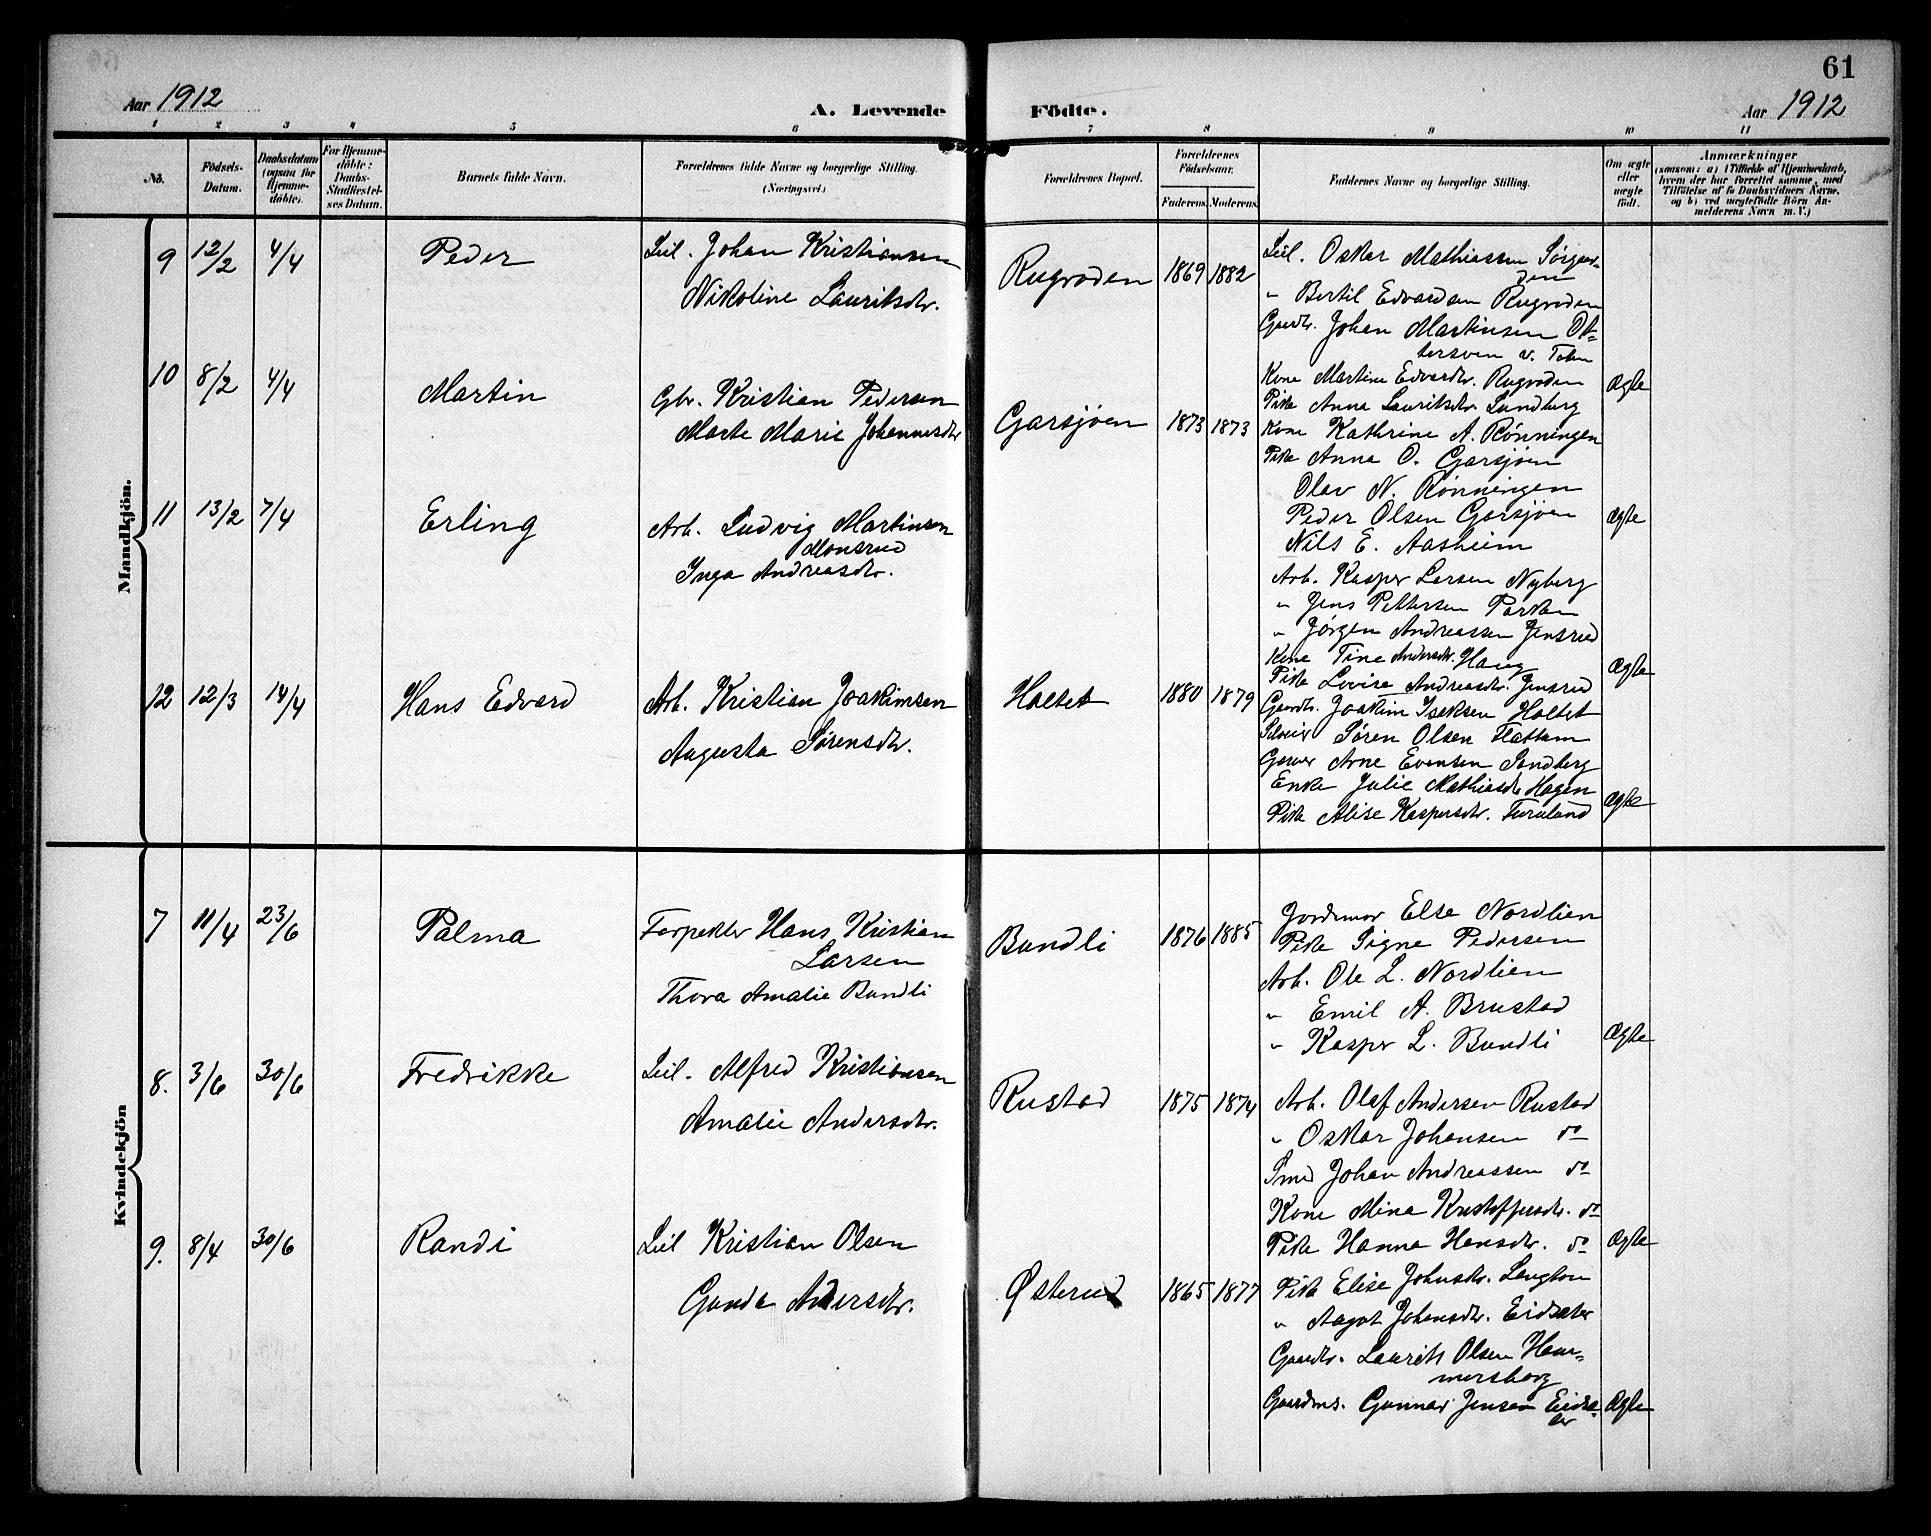 61
Aar 1912
A. Levende Födte.
Aar 1912
1 2 3 4 5 6 7 8 9 10 11
No.
Födsels-
Datum.
Daabsdatum
(ogsaa for
Hjemme-
döbte).
For Hjemme-
döbte:
Daabs-
Stadfæstel-
ses Datum.
Barnets fulde Navn.
Forældrenes fulde Navne og borgerlige Stilling.
(Næringsvei.)
Forældrenes Bopæl.
Forældrenes
Födselsaar.
Faderens. Moderens.
Faddernes Navne og borgerlige Stilling.
Om ægte
eller
uægte
födt.
Anmærkninger
(saasom: a) i Tilfælde af Hjemmedaab,
hvem der har forrettet samme, med
Tilföielse af to Daabsvidners Navne,
og b) ved uægtefödte Börn An-
melderens Navn m. V.)
Mandkjön.
9 12/2 4/4 Peder
Leil. Johan Kristiansen
Nikoline Lauritsdr.
Rugroden 1869 1882
Leil. Oskar Mathiassen Sørgaar-
den
" Bertil Edvardsen Rugroden
Gaardbr. Johan Martinsen Ot-
tersven v. Toten
Kone Martine Edvardtr. Rugroden
Pike Anna Lauritsdr. Lundberg
Ægte
10 8/2 4/4 Martin
Gbr. Kristian Pedersen
Marte Marie Johannesdtr
Garsjøen 1873 1873
Kone Kathrine A. Rønningen
Pike Anna O. Garsjøen
Olav N. Rønningen
Peder Olsen Garsjøen
Nils E. Aasheim
Ægte
11 13/2 7/4 Erling
Arb. Ludvig Martinsen
Monsrud
Inga Andreasdtr.
Arb. Kasper Larsen Nyberg
" Jens Pettersen Parken
" Jørgen Andreassen Jensrud
Kone Tine Andersdr. Haug
Pike Lovise Andreasdtr. Jensrud
Ægte
12 12/3 14/4 Hans Edvard
Arb. Kristian Joakimsen
Augusta Sørensdtr.
Holtet 1880 1879
Gaardbr. Joakim Iseksen Holtet
Søren Olsen
Garver Arne Evensen Sandberg
Enke Julie Mathiasdtr Hagen
Pike Alise Kaspersdtr. Furuland
Ægte
Kvindekjön
7 11/4 23/6 Palma
Forpakter Hans Kristian
Larsen
Thora Amalie Bundli
Bundli 1876 1885
Jordmor Else Nordlien
Pike Signe Pedersen
Arb. Ole L. Nordlien
" Emil A. Brustad
" Kasper L. Bundli
Ægte
8. 3/6 30/6 Fredrikke
Leil. Alfred Kristiansen
Amalie Andersdtr.
Rustad 1875 1874
Arb. Olaf Andersen Rustad
" Oskar Johansen do
Smed Johan Andreassen do
Kone Mina Kristoffersdtr. do
Pike Hanna Hansdtr. do
Ægte
9. 8/4 30/6 Randi
Leil Kristian Olsen
Gunda Andersdtr.
Østerud 1865 1877
Pike Elise Johnsdtr. Langton
" Aagot Johansdtr. Eidsæter
Gaardbr. Laurits Olsen Ham-
mersborg
Gaardms. Gunnar Jensen Eidsæ-
ter
Ægte